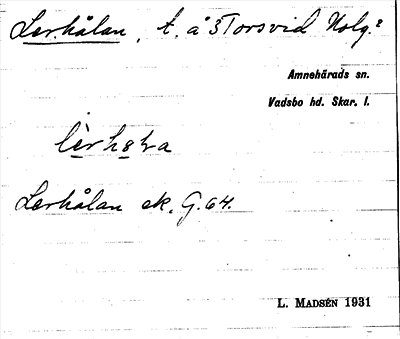 Lerhålan, t. å 3 Torsvid Nolg.
Amnehärads sn.
Vadsbo hd. Skar. l.
Lerhålan ek. G. 64.
L. Madsén 1931